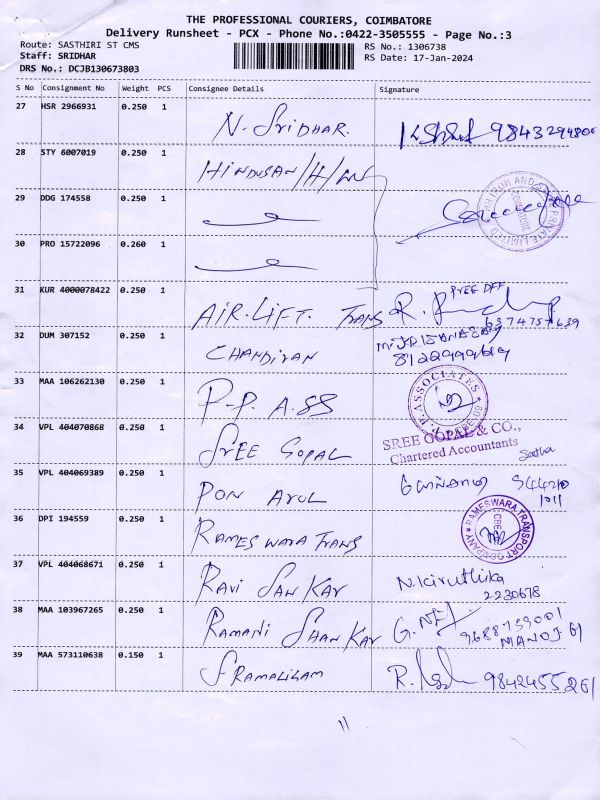 THE PROFESSIONAL COURIERS, COIMBATORE
Delivery Runsheet - PCX - Phone No.:0422-3505555 - Page No.:3
Route: SASTHIRI ST CMS
RS No.: 1306738
Staff: SRIDHAR
RS Date: 17-Jan-2024
DRS No.: DCJB130673803
S No Consignment No Weight PCS Consignee Details Signature
27 HSR 2966931 0.250 1
N. SRIDHAR.
28 STY 6007019 0.250 1
29 DDG 174558 0.250 1
30 PRO 15722096 0.260 1
31 KUR 4000078422 0.250 1
AIR-LIFT. TRANS
32 DUM 307152 0.250 1
33 MAA 106262130 0.250 1
P.P. A.SS
ASSOCIATES
34 VPL 404070868 0.250 1
SREE GOPAL
SREE GOPAL & CO.,
Chartered Accountants
35 VPL 404069389 0.250 1
PON ARUL
36 DPI 194559 0.250 1
RAMESWARA TRANS
RAMESWARA TRANSPORT COMPANY
CBE
37 VPL 404068671 0.250 1
RAVI SANKAR
N. Kiruthika
2230678
38 MAA 103967265 0.250 1
RAMANI SHANKAR
MANOJ
39 MAA 573110638 0.150 1
11